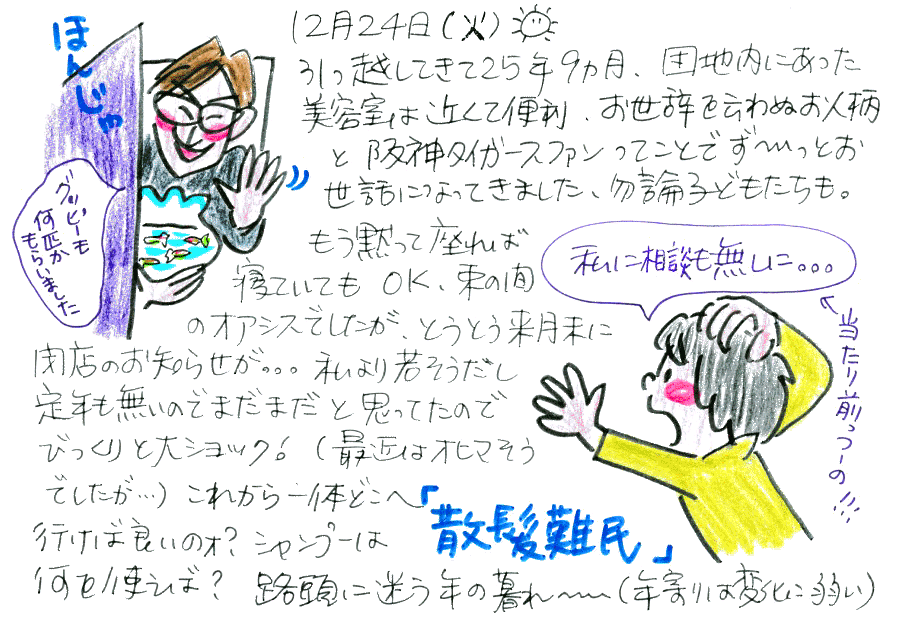 12月24日(火)
引っ越してきて25年9ヵ月、団地内にあった
美容室は近くて便利、お世辞を云わぬお人柄
と阪神タイガースファンってことでず〜っとお
世話になってきました、勿論子どもたちも。
もう黙って座れば
寝ていても OK、束の間
のオアシスでしたが、とうとう来月末に
閉店のお知らせが。。。私より若そうだし
定年も無いのでまだまだと思ってたので
びっくりと大ショック!(最近はオヒマそう
でしたが…)これから一体どこへ
行けば良いのォ?シャンプーは
何を使えば?路頭に迷う年の暮れ〜(年寄りは変化に弱い)
「散髪難民」
ほんじゅ
グッピーも
何匹か
もらいました
私に相談も無しに。。。
当たり前っつーの!!!